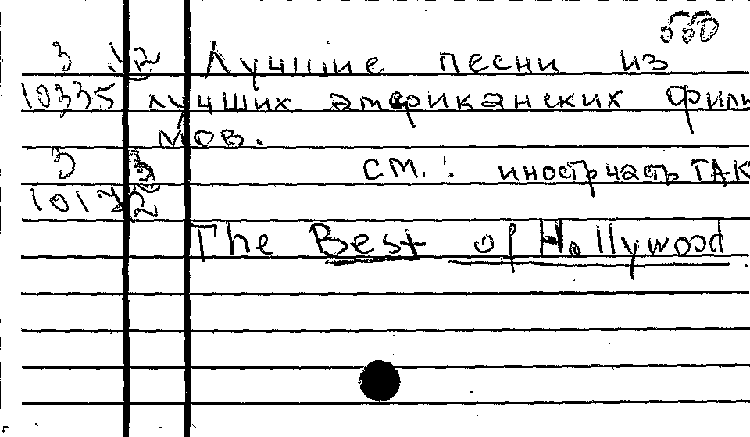 550
3 12 Лучшие песни из
10335 лучших американских филь
мов.
3 см.: иностр часть ТАК
1017
The Best of Hollywood